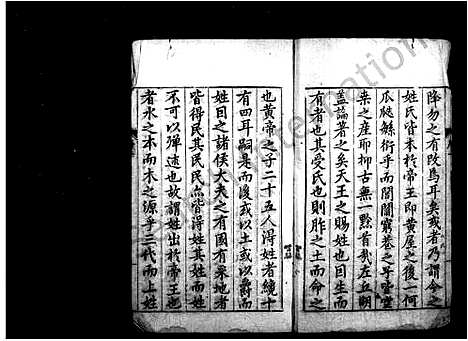 降易之有改焉耳矣或者乃謂今之
姓氏皆本於帝王即黄屋之後一何
瓜瓞緜衍乎而閭閻窮巷之子皆空
桒之産耶抑古無一黔首哉左丘明
盖論著之矣天王之賜姓也因生而
有者也其受氏也則胙之土而命之
也黄帝之子二十五人得姓者纔十
有四耳嗣是而後或以土或以爵而
姓目之諸侯大夫之有國有采地者
皆得民其民民亦皆得姓其姓而
不可以殫述也故謂姓出於帝王也
者水之本而木之源乎三代而上姓